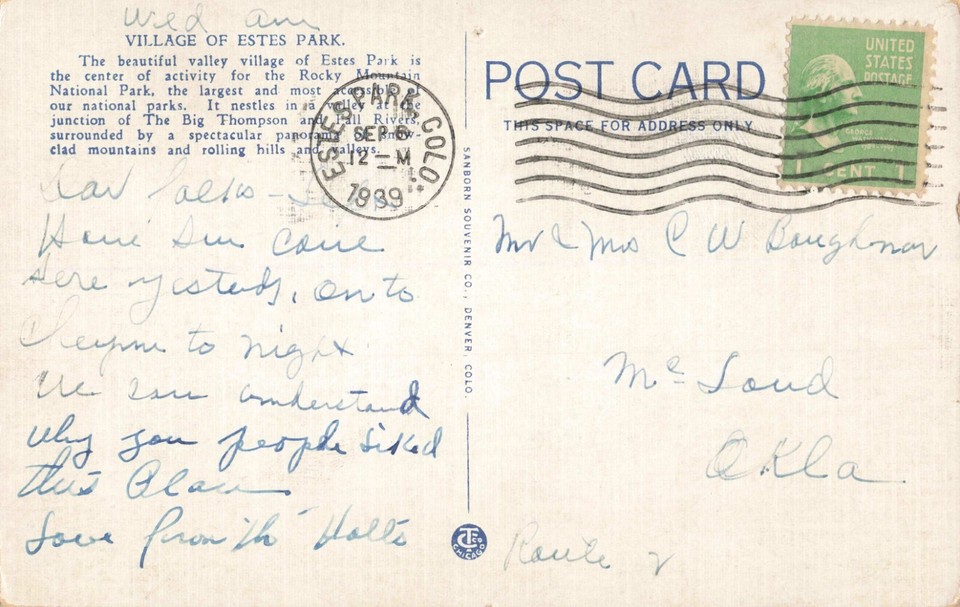 Wed am
VILLAGE OF ESTES PARK.
The beautiful valley village of Estes Park is
the center of activity for the Rocky Mountain
National Park, the largest and most accessible of
our national parks. It nestles in a valley at the
junction of The Big Thompson and Fall Rivers,
surrounded by a spectacular panorama of snow-
clad mountains and rolling hills and valleys.
Dear Folks -
here yestady, on to
Cheyenne to night
We can understand
why you people liked
this Place
Love from th' Holts
SANBORN SOUVENIR CO., DENVER, COLO.
CT CO
CHICAGO
ESTES PARK COLO.
SEP 6
12 - M
1939
POST CARD
THIS SPACE FOR ADDRESS ONLY
UNITED
STATES
POSTAGE
GEORGE
WASHINGTON
1 CENT 1
Mr & Mrs C W Boughman
Mc Loud
Okla
Route 2